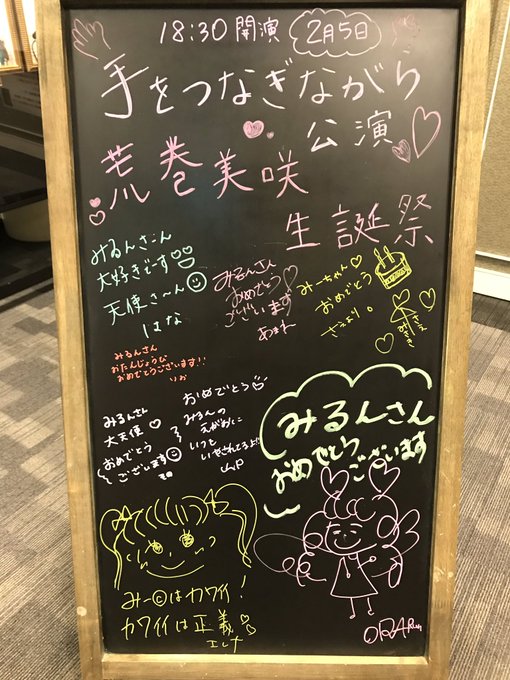 18:30 開演 2月5日
手をつなぎながら
公演
荒巻美咲
生誕祭
みるんさーん
大好きです
天使さ〜ん
はな
みるんさん
おめでとう
ございます
みーちゃん
おめでとう
さえり。
みるんさん
おたんじょうび
おめでとうございます!!
りお
みるんさん
大天使
おめでとう
ございます
おめでとう
みるんの
えがおに
いつも
いやされてるよ!!
みるんさん
おめでとう
ございます
みー©はカワイイ!
カワイイは正義
エレナ